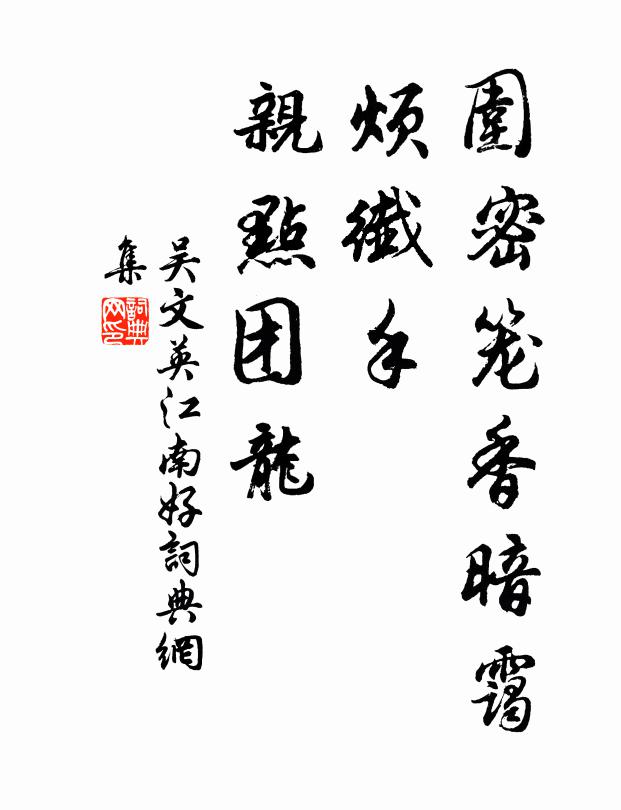 圍密笼香暗靄
煩纖手
親點团龍
吴文英江南好詞典網
集
詞典网印